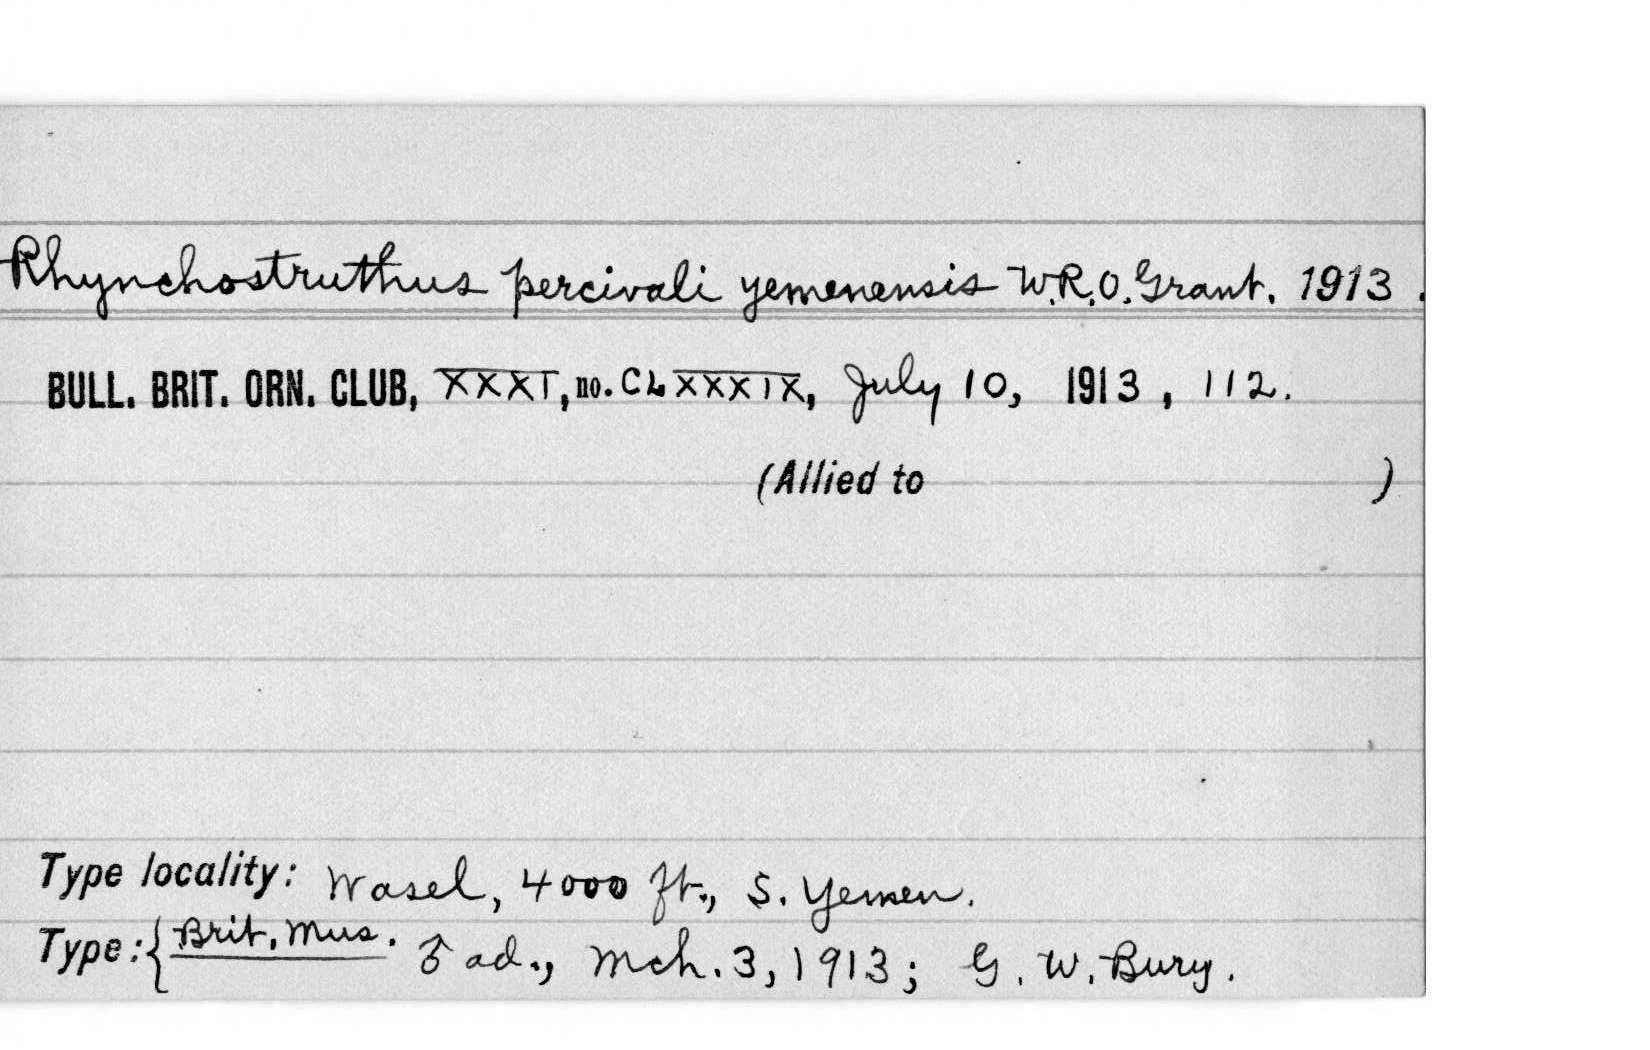 Rhynchostruthus percivali yemenensis W.R.O. Grant. 1913.
BULL. BRIT. ORN. CLUB, XXXI, no. CLXXXIX, July 10, 1913, 112.
(Allied to )
Type locality: Wasel, 4000 ft., S. Yemen.
Type: { Brit. Mus. ♂ ad., Mch. 3, 1913; G. W. Bury.